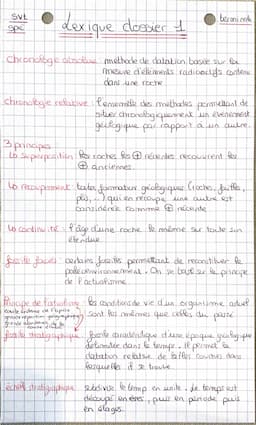 SVT
spé
Lexique dossier 1
chronologie absolue : méthode de datation basée sur la
mesure d'éléments radioactifs contenu
dans une roche
chronologie relative : l'ensemble des méthodes permettant de
situer chronologiquement un évènement
géologique par rapport à un autre.
3 principes
la superposition : les roches les ⊕ récentes recouvrent les
⊕ anciennes.
la recoupement : toutes formation géologique (roches, failles,
plis, ..) qui en recoupe une autre est
considérée comme ⊕ récente
la continuité : l'âge d'une roche le même sur toute son
étendue
fossile faciès : certains fossiles permettant de reconstituer le
paléoenvironnement. On se base sur le principe
de l'actualisme.
Principe de l'actualisme : les conditions de vie d'un organisme actuel
sont les mêmes que celles du passé
fossile stratigraphique : fossile caractéristique d'une époque géologique
délimitée dans le temps. Il permet la
datation relative de
lesquelles il se trouve.
échelle stratigraphique : subdivise le temps en unité. Le temps est
découpé en ères, puis en période puis
en étages.